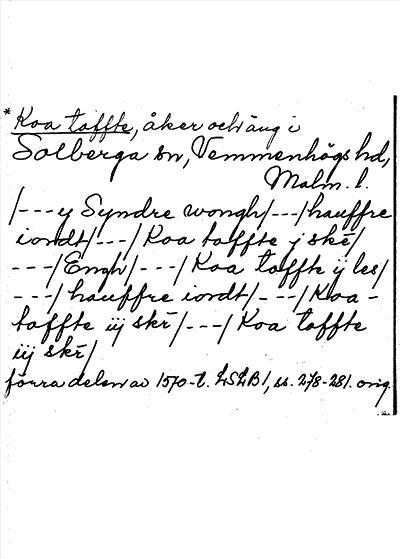 * Koa toffte, åker och äng i
Solberga sn, Vemmenhögs hd,
Malm. l.
/---y Syndre wongh/---/hauffre
iordt/---/Koa toffte j skē/
---/Engh/---/Koa toffte ÿ les/
---/hauffre iordt/---/Koa-
toffte iÿ skē/---/Koa toffte
iÿ skē/
förra delen av 1570-t. LSLB1, ss. 278-281. orig.